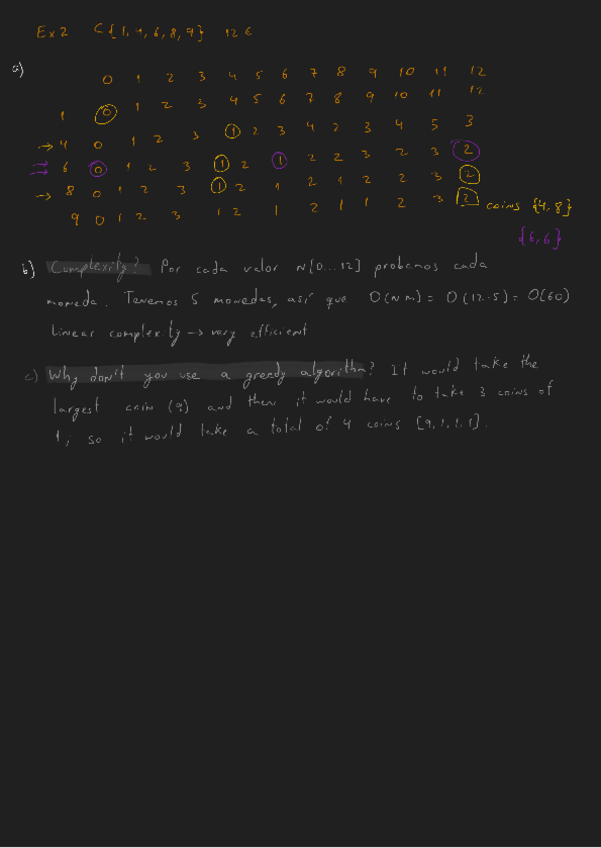 Ex2 C{1,4,6,8,9} 12€
a)
0 1 2 3 4 5 6 7 8 9 10 11 12
1 0 1 2 3 4 5 6 7 8 9 10 11 12
→ 4 0 1 2 3 1 2 3 4 2 3 4 5 3
→ 6 0 1 2 3 1 2 1 2 2 3 2 3 2
→ 8 0 1 2 3 1 2 1 2 1 2 2 3 2 coins {4,8}
9 0 1 2 3 1 2 1 2 1 1 2 3 2
{6,6}
b) Complexity? Por cada valor N[0...12] probamos cada
moneda. Tenemos 5 monedas, así que O(N M) = O(12·5) = O(60)
Linear complexity → very efficient
c) Why don't you use a greedy algorithm? It would take the
largest coin (9) and then it would have to take 3 coins of
1, so it would take a total of 4 coins [9,1,1,1].